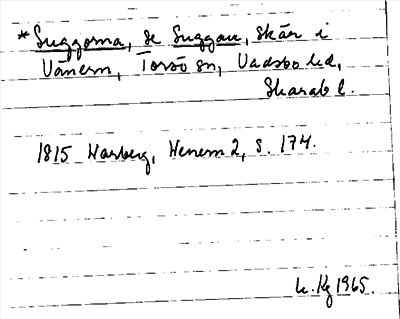 *Suggorna, se Suggan, skär i
Vänern, Torsö sn, Vadsbo hd,
Skarab l.
1815 Warberg, Wenern 2, S. 174.
1965.